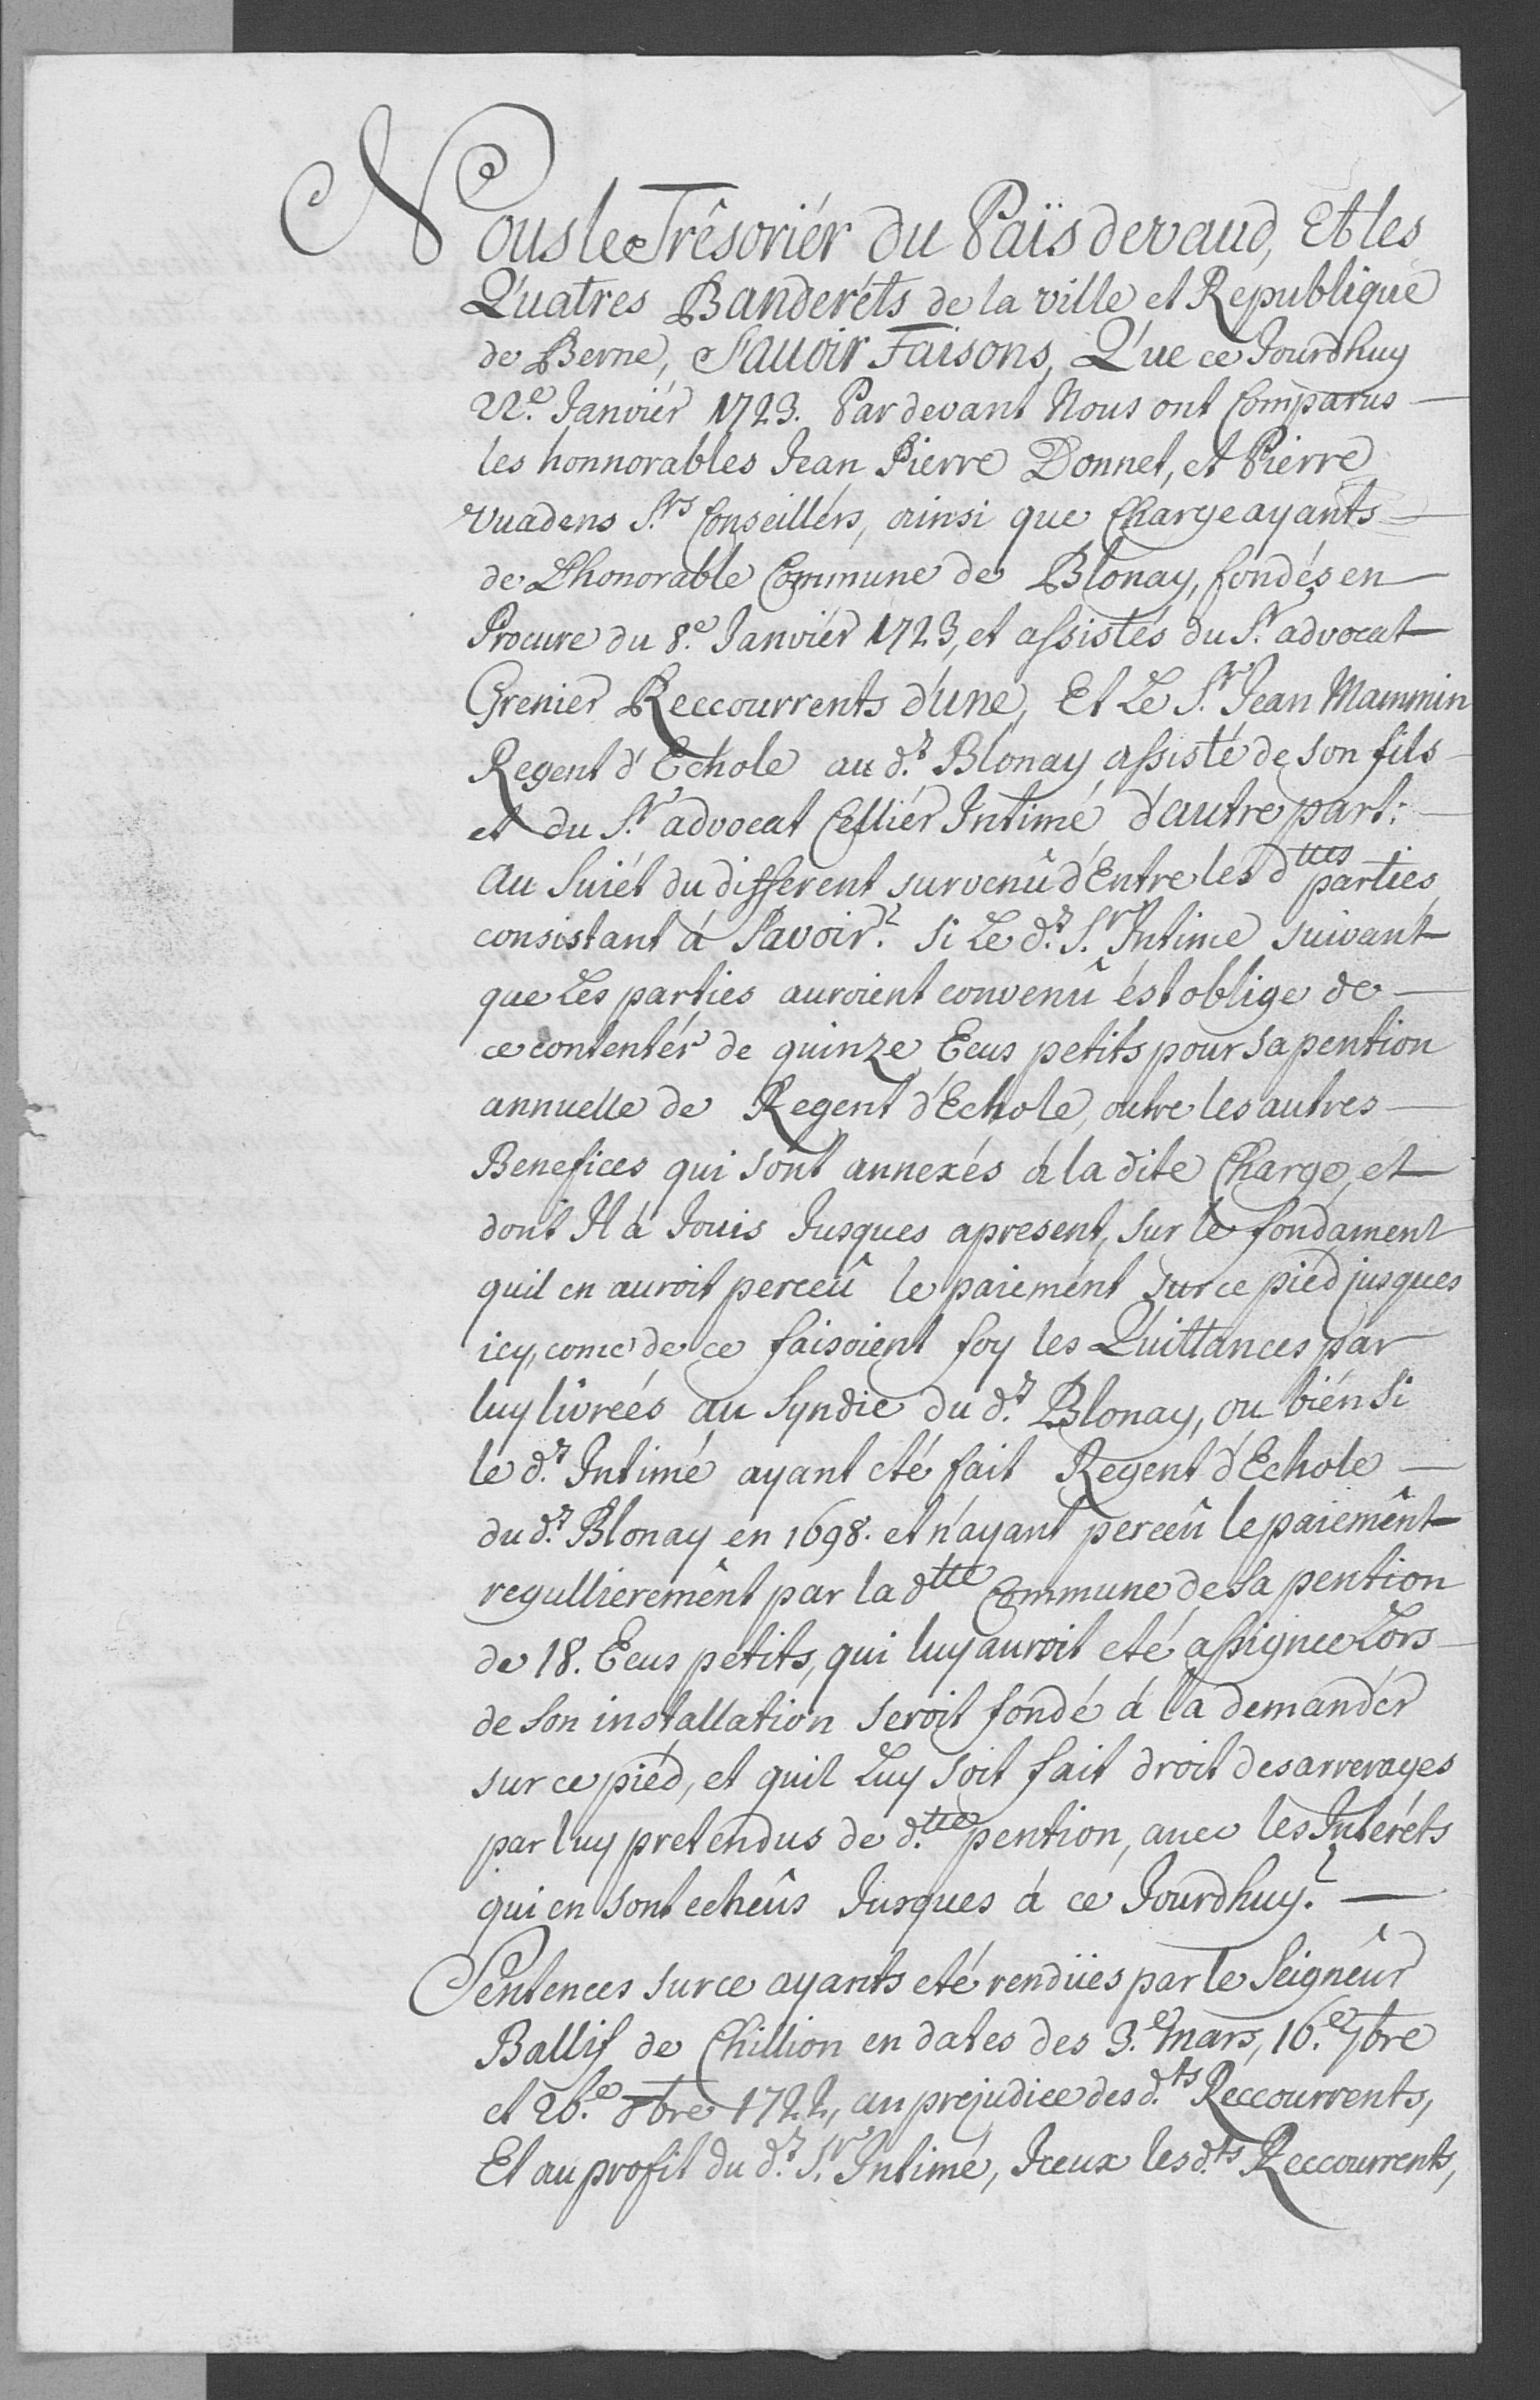 Nous le Trêsoriér du Païs devaud, Et les
Quatres Banderéts de la ville et Republique
de Berne, Sauoir Faisons, Que ce Jourdhuy
22.e Janviér 1723. Par devant Nous ont Comparus
les honnorables Jean Pierre Donnet, et Pierre
vuadens S.rs Conseillérs, ainsi que Charge ayants
de Lhonorable Commune de Blonay, fondés en
Procure du 8.e Janviér 1723, et assistés du S.r advocat
Grenier Reccourrents d'une, Et Le S.r Jean Mammin
Regent d'Echole au d.t Blonay assisté de son fils
et du S.r advocat Celliér Intimé d'autre part.
Au Suiét du different survenû d'Entre les dttes parties
consistant á Savoir? Si Le d.t S.r Intime suivant
que Les parties auroient convenû ést oblige de
ce contentér de quinze Ecus petits pour sa pention
annuelle de Regent d'Echole, outre les autres
Benefices qui sont annexés á la dite Charge, et
dont Il á Jouis Jusques apresent, sur le fondament
quil en auroit perceû le paiemént sur ce pied jusques
icy, come de ce faisoient foy les Quittances par
luy livreés au Syndic du d.t Blonay, ou bién Si
le d.t Intimé ayant eté fait Regent d'Echole
du d.t Blonay en 1698. et n'ayant perceû le paiemênt
regullieremênt par la dtte Commune de sa pention
de 18. Ecus petits, qui luy auroit eté assignee Lors
de son installation seroit fondé á la demandér
sur ce piéd, et quil Luy soit fait droit des arrerages
par luy pretendus de d.tte pention, auec les Intéréts
qui en sont echeûs Jusques á ce Jourdhuy?
Sentences sur ce ayants eté rendües par le Seignêur
Ballif de Chillion en dates des 3.e mars, 16.e 7bre
et 26.e 8bre 1722, au prejudice des d.ts Reccourrents,
Et au profit du d.t S.r Intimé, Iceux les d.ts Reccourrents,